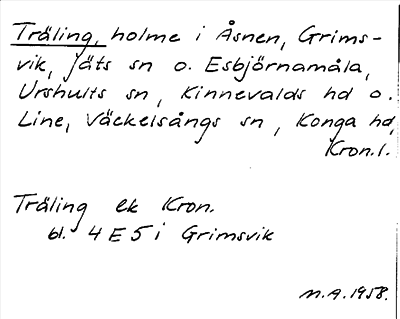 Träling, holme i Åsnen, Grims-
vik, Jäts sn o. Esbjörnamåla,
Urshults sn, Kinnevalds hd o.
Line, Väckelsångs sn, Konga hd,
Kron.l.
Träling ek Kron.
bl. 4 E 5 i Grimsvik
M.A. 1958.